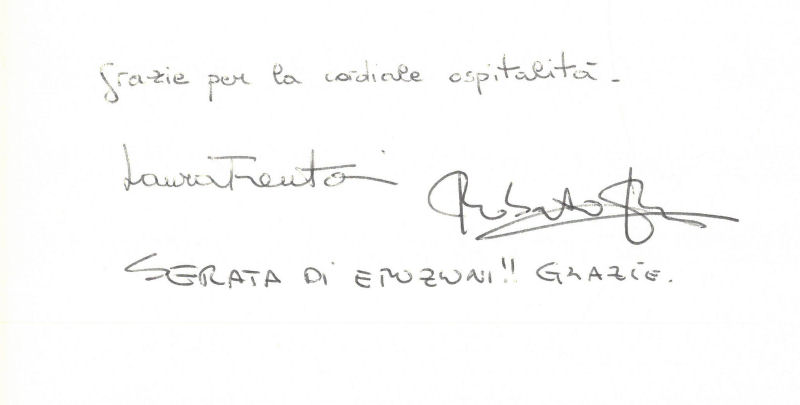 Grazie per la cordiale ospitalità -
Laura Trentini
Roberto
SERATA DI EMOZIONI!! GRAZIE.